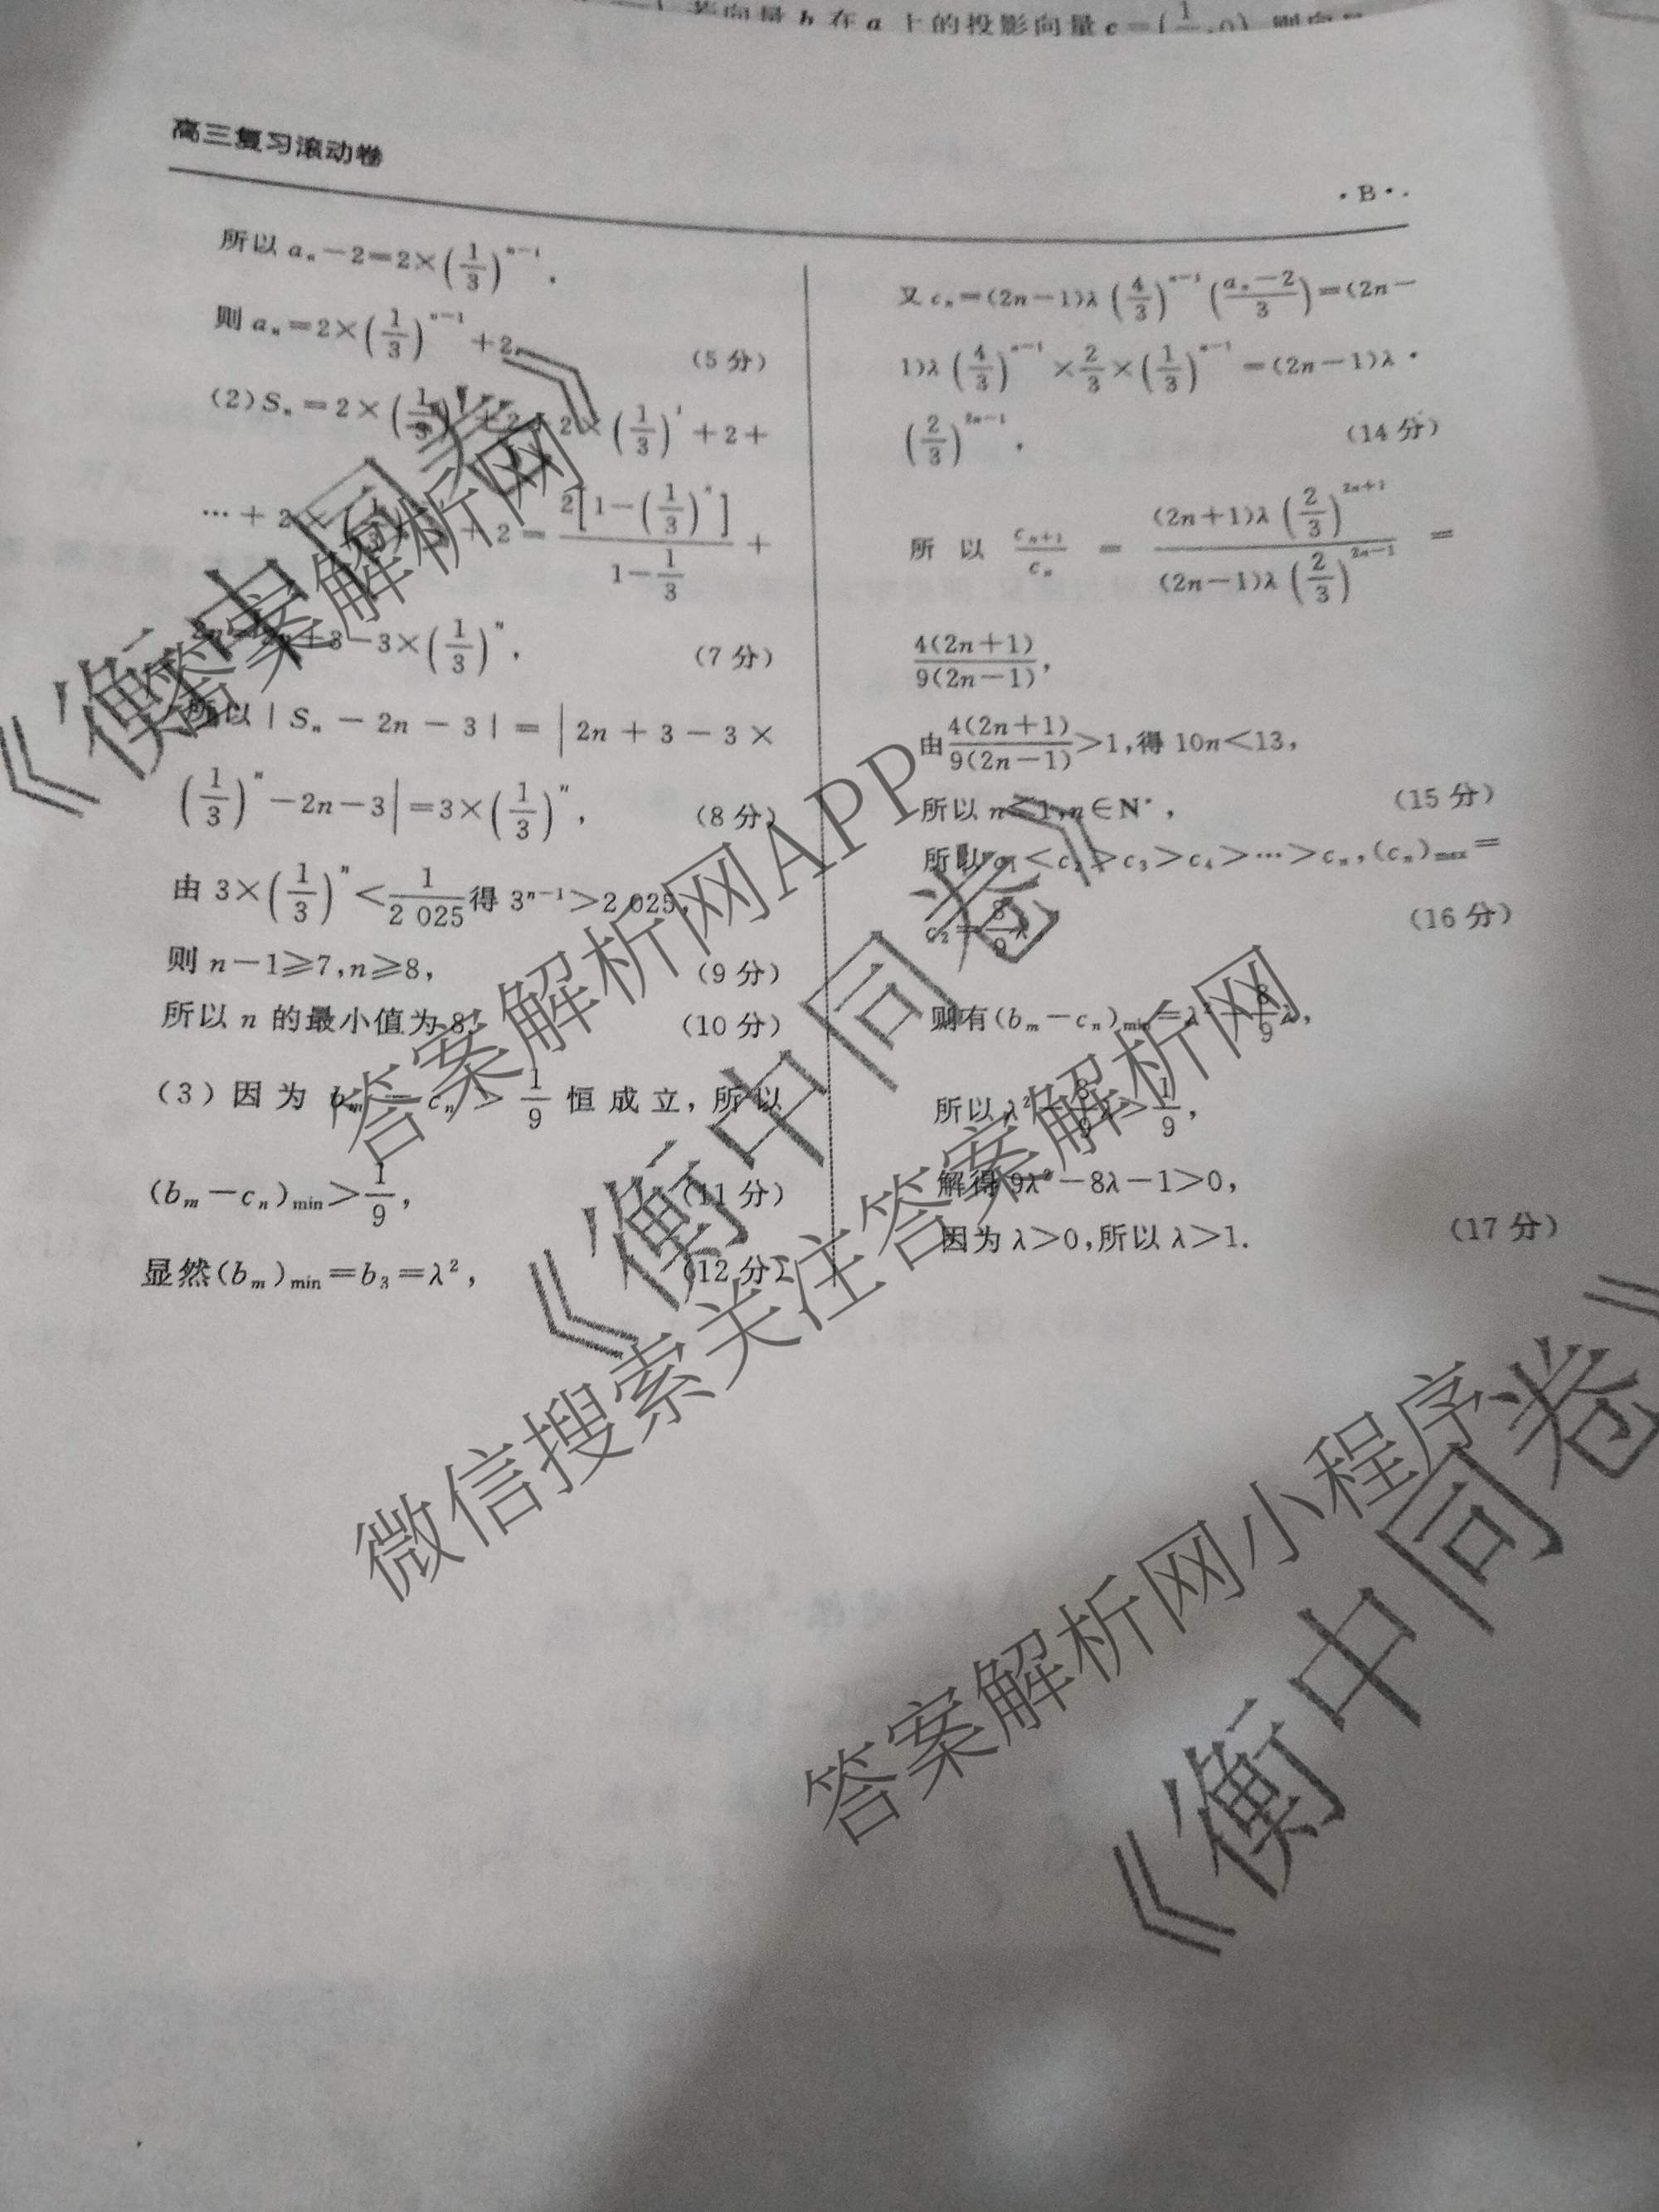 若向量 b 在 a 上的投影向量 c=(1/ ,0)
高三复习滚动卷
·B·.
所以 aₙ-2=2×(1/3)ⁿ⁻¹.
则 aₙ=2×(1/3)ⁿ⁻¹+2, (5 分)
(2)Sₙ=2×(1/3) +2+2×(1/3)¹+2+
…+2×(1/3) +2=2[1-(1/3)ⁿ]/(1-1/3)+
+3-3×(1/3)ⁿ, (7 分)
所以|Sₙ-2n-3|=|2n+3-3×
(1/3)ⁿ-2n-3|=3×(1/3)ⁿ, (8 分)
由 3×(1/3)ⁿ<1/2 025得 3ⁿ⁻¹>2 025,
则 n-1≥7,n≥8, (9 分)
所以 n 的最小值为 8. (10 分)
(3)因为 bₘ-cₙ>1/9 恒成立,所以
(bₘ-cₙ)min>1/9, (11 分)
显然(bₘ)min=b₃=λ², (12 分)
又 cₙ=(2n-1)λ(4/3)ⁿ⁻¹((aₙ-2)/3)=(2n-
1)λ(4/3)ⁿ⁻¹×2/3×(1/3)ⁿ⁻¹=(2n-1)λ·
(2/3)²ⁿ⁻¹, (14 分)
所以 cₙ₊₁/cₙ=(2n+1)λ(2/3)²ⁿ⁺¹/(2n-1)λ(2/3)²ⁿ⁻¹=
4(2n+1)/9(2n-1),
由4(2n+1)/9(2n-1)>1,得 10n<13,
所以 n≤1,n∈N*, (15 分)
所以 c₁<c₂>c₃>c₄>…>cₙ,(cₙ)max=
c₂=8/9λ, (16 分)
则有(bₘ-cₙ)min=λ²-8/9λ,
所以 λ²-8/9λ>1/9,
解得 9λ²-8λ-1>0,
因为 λ>0,所以 λ>1. (17 分)
《衡中同卷》
答案解析网
答案解析网APP
《衡中同卷》
微信搜索关注答案解析网
答案解析网小程序
《衡中同卷》